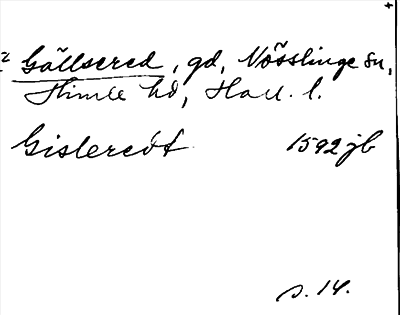 Gällsered, gd, Nösslinge sn,
Himle hd, Hall. l.
Gislerødt 1592 jb
s. 14.